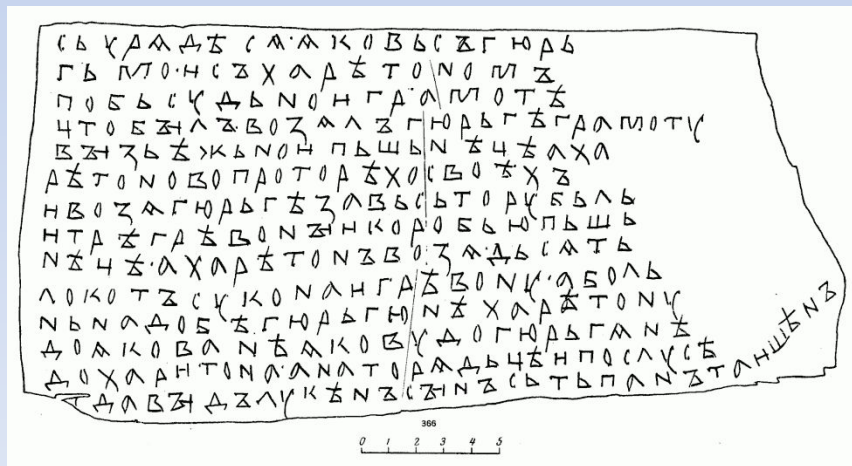 сьурѧдѣсѧ·ѧковьсъгюрь
гьмо·исъхарѣтономъ
побьсудьноиграмотѣ
цтобъілъ·возѧлъгюрьгѣграмоту
въізьѣжьноипьшьнѣцѣаха
рѣтоновопроторѣхосвоѣхъ
ивозѧгюрьгѣзавьсьторубьль
итрѣгрѣвонъіикоробьюпьшь
нѣцѣ·ахарѣтонъвозѧ·дьсѧть
локотъсуконаигрѣвону·аболь
ньнадобѣгюрьгюнѣхарѣтону
доѧкованѣѧковудогюрьгѧнѣ
дохаритона·анаторѧдьцѣипослусѣ
тдавъідълукѣнъсъінъсьтьпанътаишѣнъ
366
0 1 2 3 4 5